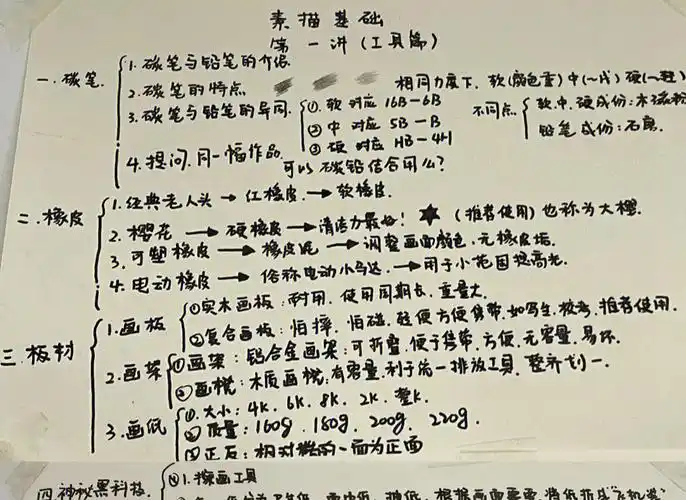 素描基础
第一讲(工具篇)
一.碳笔.
1.碳笔与铅笔的介绍.
2.碳笔的特点
相同力度下,软(颜色重)中(~浅)硬(~轻)
3.碳笔与铅笔的异同.
①.软 对应 16B-6B
②中 对应 5B-B
③硬 对应 HB-4H
不同点
软.中.硬成份:木
铅笔成份:石
4.提问.同一幅作品可以碳铅结合用么?
二.橡皮
1.经典老人头→红橡皮.→软橡皮.
2.樱花→硬橡皮→清洁力最好!★(推荐使用)也称为大樱.
3.可塑橡皮→橡皮泥→调整画面颜色.无橡皮垢.
4.电动橡皮→俗称电动小马达.→用于小范围提高光.
三.板材
1.画板
①实木画板:耐用.使用周期长.重量大.
②复合画板:怕摔.怕磕.轻便方便携带.如写生.校考.推荐使用.
2.画架
①画架:铝合金画架:可折叠.便于携带.方便.无容量.易坏.
②画櫈:木质画櫈.有容量.利于统一排放工具.整齐划一.
3.画纸
①.大小:4K.6K.8K.2K.整K.
②质量:160g.180g.200g.220g.
③正反:相对糙的一面为正面
四.神秘黑科技.
①1.擦画工具